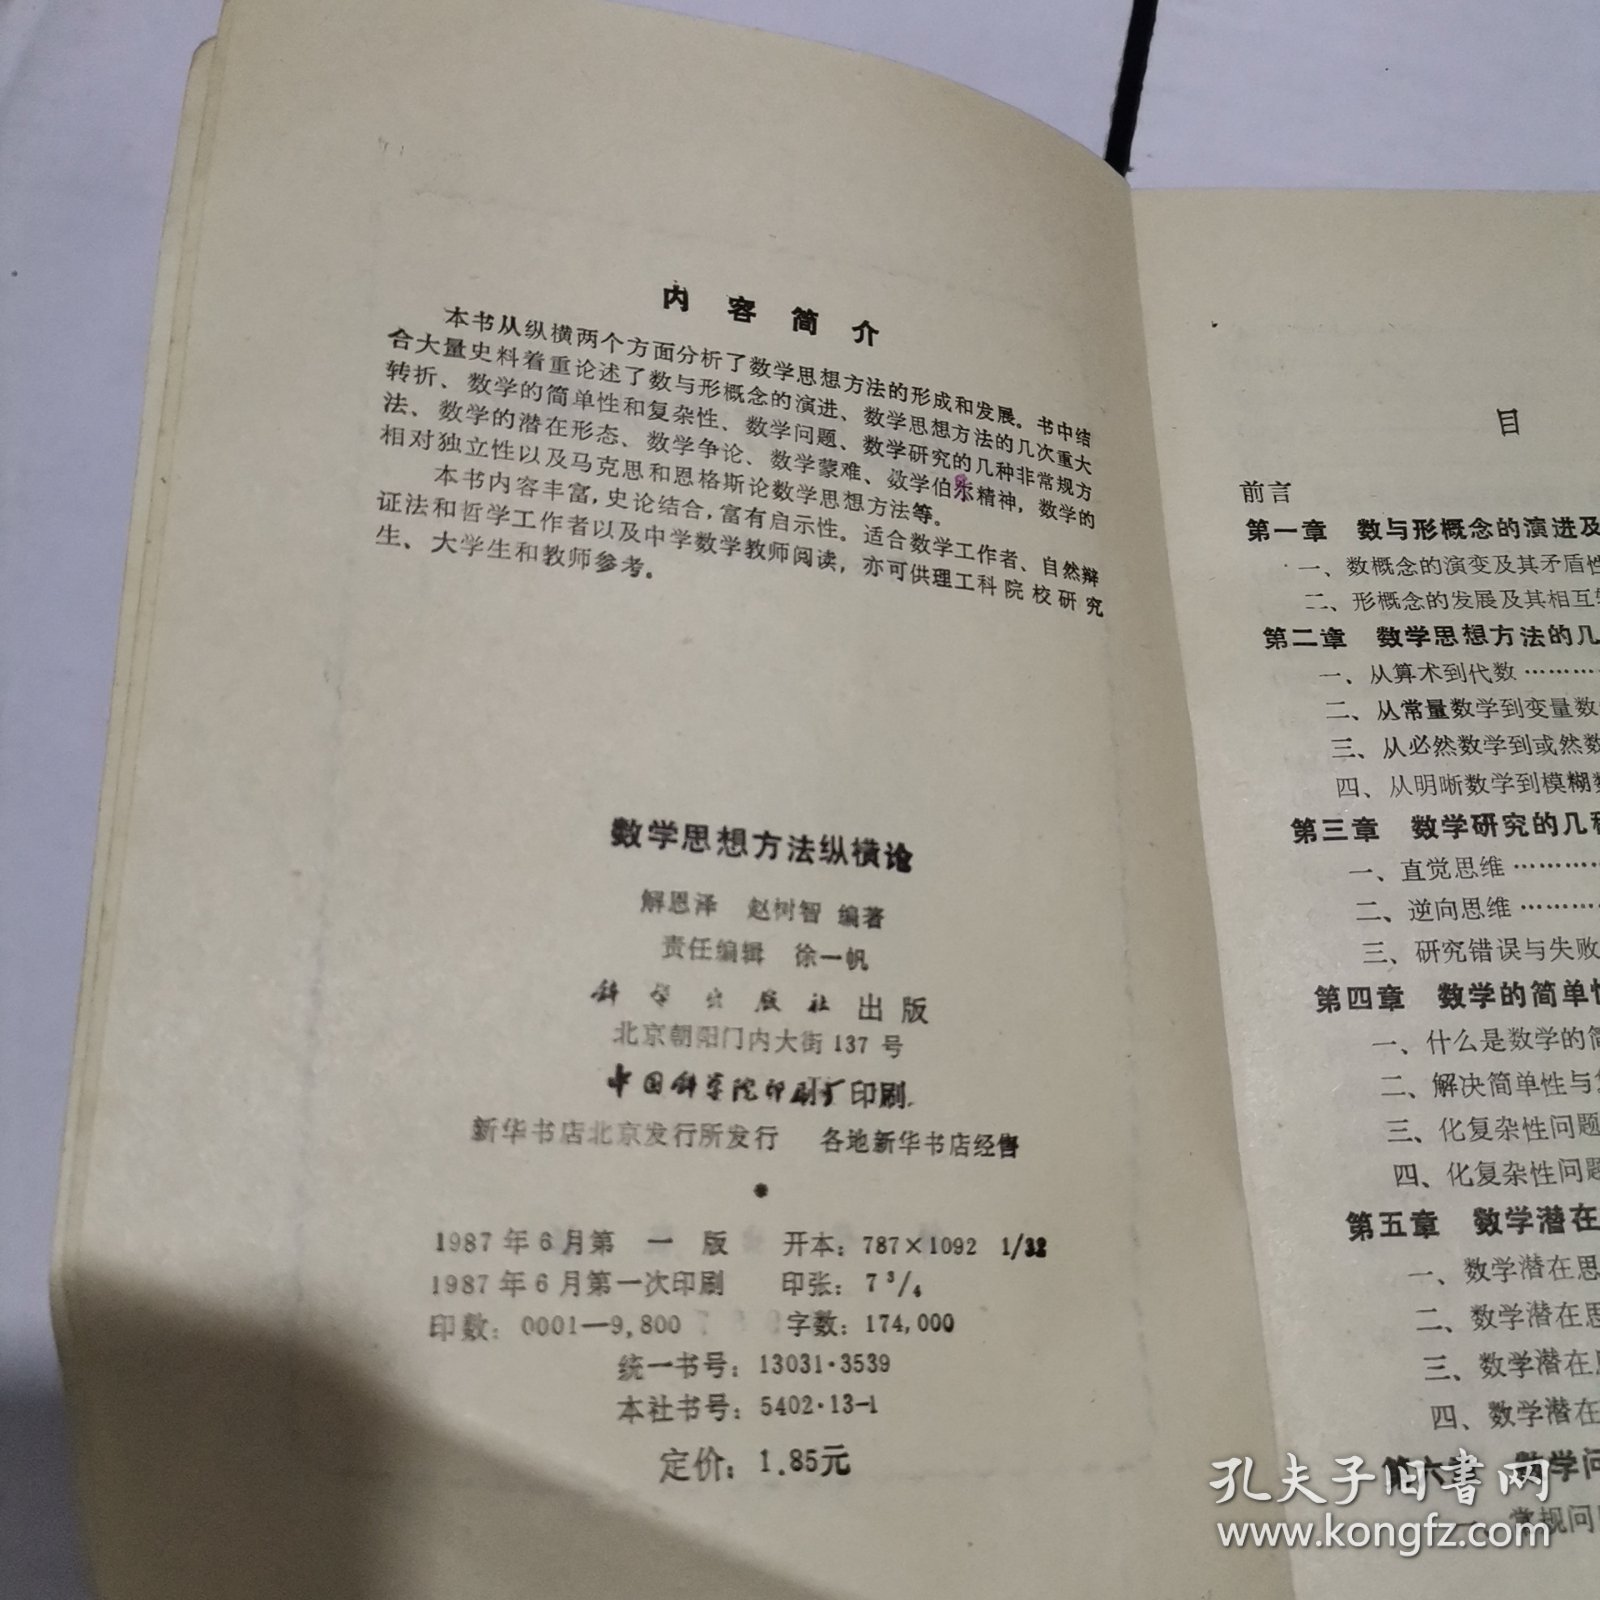 内容简介
本书从纵横两个方面分析了数学思想方法的形成和发展。书中结
合大量史料着重论述了数与形概念的演进、数学思想方法的几次重大
转折、数学的简单性和复杂性、数学问题、数学研究的几种非常规方
法、数学的潜在形态、数学争论、数学蒙难、数学伯尔精神，数学的
相对独立性以及马克思和恩格斯论数学思想方法等。
本书内容丰富，史论结合，富有启示性。适合数学工作者、自然辩
证法和哲学工作者以及中学数学教师阅读，亦可供理工科院校研究
生、大学生和教师参考。
数学思想方法纵横论
解恩泽 赵树智 编著
责任编辑 徐一帆
科学出版社出版
北京朝阳门内大街137号
中国科学院印刷厂印刷
新华书店北京发行所发行 各地新华书店经售
*
1987年6月第一版 开本：787×1092 1/32
1987年6月第一次印刷 印张：7 3/4
印数：0001—9,800 字数：174,000
统一书号：13031·3539
本社书号：5402·13-1
定价：1.85元
目
前言
第一章 数与形概念的演进及
一、数概念的演变及其矛盾性
二、形概念的发展及其相互
第二章 数学思想方法的几
一、从算术到代数…………
二、从常量数学到变量数
三、从必然数学到或然数
四、从明晰数学到模糊
第三章 数学研究的几种
一、直觉思维…………
二、逆向思维…………
三、研究错误与失败
第四章 数学的简单性
一、什么是数学的简
二、解决简单性与
三、化复杂性问题
四、化复杂性问题
第五章 数学潜在
一、数学潜在思
二、数学潜在思
三、数学潜在
四、数学潜在
第六章 数学问
一、常规问
孔夫子旧书网
www.kongfz.com